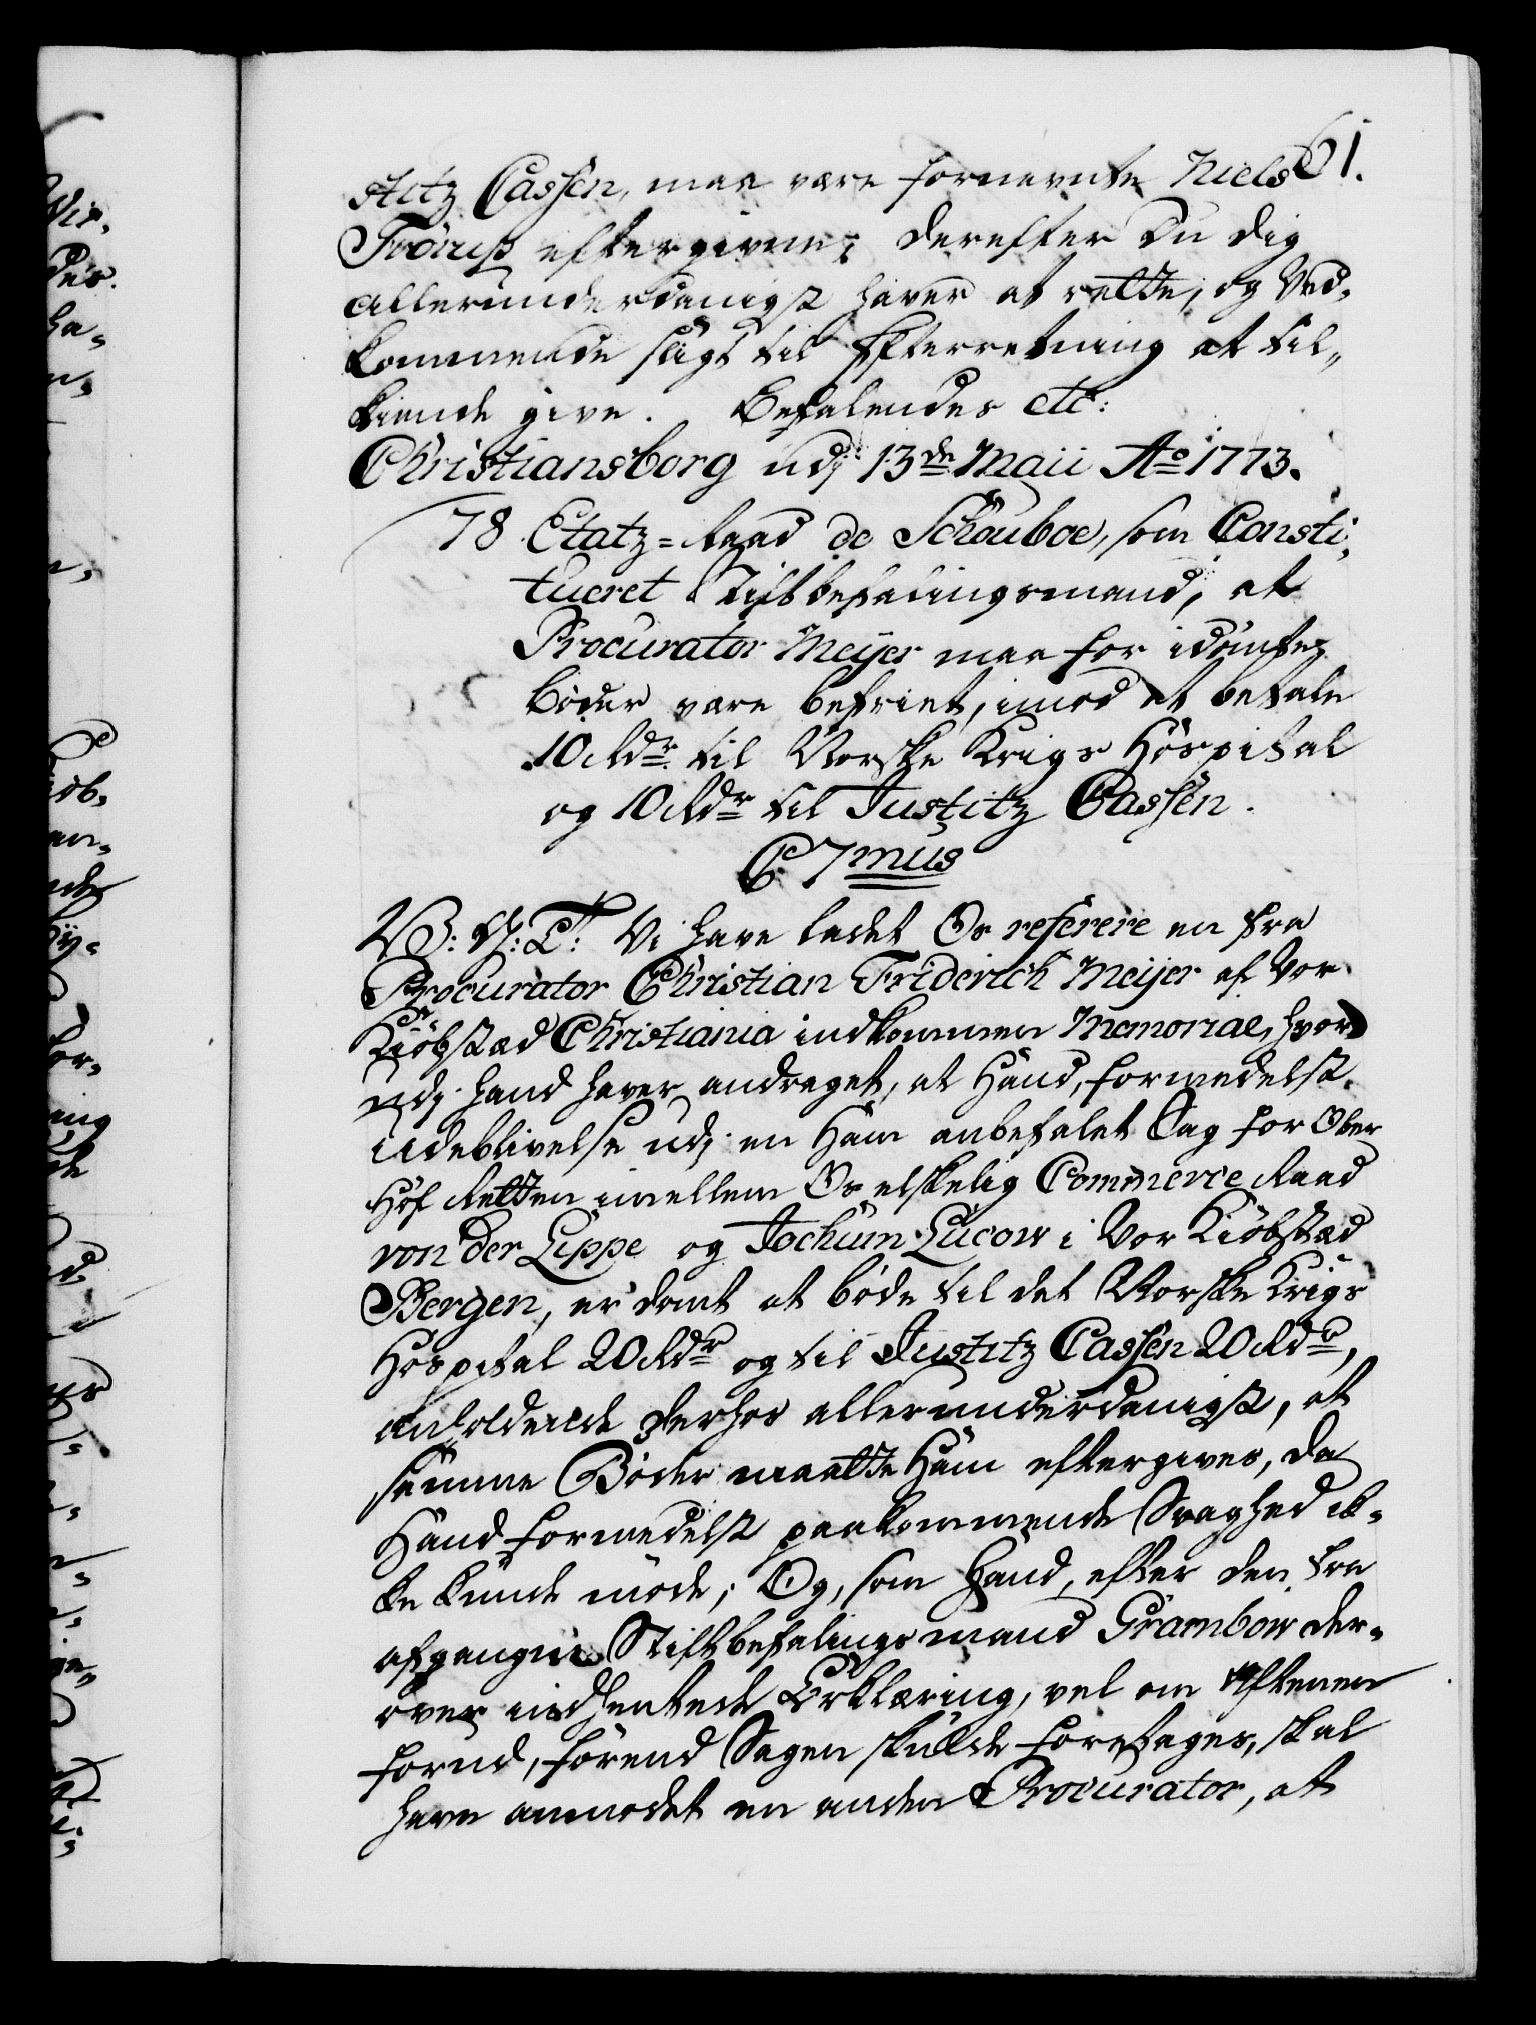 61.
stitz Cassen, maa være fornævnte Niels
Trörup eftergivne; derefter du dig
allerunderdanigst haver at rette, og Ved-
kommende sligt til Efterretning at til-
kiende give. Befalendes etc:
Christiansborg udj 13de Maii Ao 1773.
78 Etatz-Raad de Schouboe, som Consti-
tueret Stiftbefalingsmand, at
Procurator Meijer maa for idömte
Böder være befriet, imod at betale
10 Rdr til Norske Krigs Hospital
og 10 Rdr til Justitz Cassen.
C 7mus
V: G: T: Vi have ladet Os referere en fra
Procurator Christian Friderich Meijer af Vor
Kiöbstæd Christiania indkommen Memorial, hvor
udj hand haver andraget, at Hand, formedelst
Udeblivelse udj en Ham anbefalet Sag for Ober
Hof Retten imellem Os elskelig Commerce Raad
von der Lippe og Jochum Lucow i Vor Kiöbstæd
Bergen, er dömt at böde til det Norske Krigs
Hospital 20 Rdr og til Justitz Cassen 20 Rdr,
anholdende derhos allerunderdanigst, at
samme Böder maatte Ham eftergives, da
Hand formedelst paakommende Svaghed ik-
ke kunde möde; Og, som Hand, efter den fra
afgangne Stiftbefalingsmand Grambow der-
over indhentede Erklæring, vel om Aftenen
forud, förend Sagen skulde foretages, skal
have anmodet en anden Procurator, at